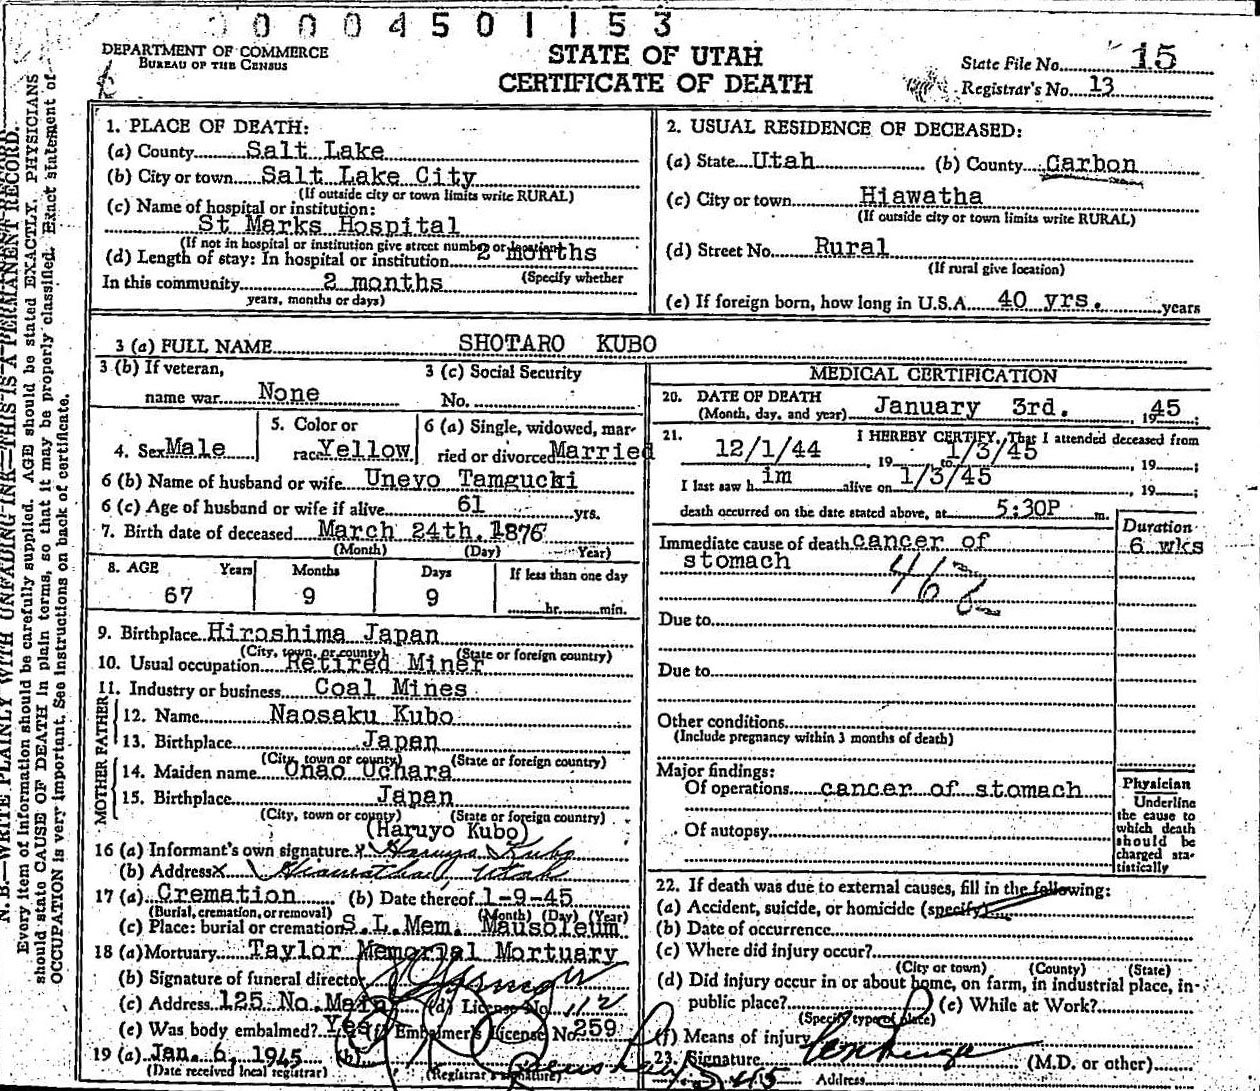 0004501153
DEPARTMENT OF COMMERCE
BUREAU OF THE CENSUS
STATE OF UTAH
CERTIFICATE OF DEATH
State File No. 15
Registrar's No. 13
N. B.—WRITE PLAINLY WITH UNFADING INK—THIS IS A PERMANENT RECORD.
Every item of information should be carefully supplied. AGE should be stated EXACTLY. PHYSICIANS
should state CAUSE OF DEATH in plain terms, so that it may be properly classified. Exact statement of
OCCUPATION is very important. See instructions on back of certificate.
1. PLACE OF DEATH:
(a) County Salt Lake
(b) City or town Salt Lake City
(If outside city or town limits write RURAL)
(c) Name of hospital or institution:
St Marks Hospital
(If not in hospital or institution give street number or location)
(d) Length of stay: In hospital or institution 2 months
(Specify whether
In this community 2 months
years, months or days)
2. USUAL RESIDENCE OF DECEASED:
(a) State Utah (b) County Carbon
(c) City or town Hiawatha
(If outside city or town limits write RURAL)
(d) Street No. Rural
(If rural give location)
(e) If foreign born, how long in U.S.A. 40 yrs. years
3 (a) FULL NAME SHOTARO KUBO
3 (b) If veteran,
name war None
3 (c) Social Security
No.
4. Sex Male
5. Color or
race Yellow
6 (a) Single, widowed, mar-
ried or divorced Married
6 (b) Name of husband or wife Uneyo Tamgucki
6 (c) Age of husband or wife if alive 61 yrs.
7. Birth date of deceased March 24th. 1876
(Month) (Day) Year)
8. AGE Years Months Days If less than one day
67 9 9 hr. min.
9. Birthplace Hiroshima Japan
(City, town, or county) (State or foreign country)
10. Usual occupation Retired Miner
11. Industry or business Coal Mines
FATHER
12. Name Naosaku Kubo
13. Birthplace Japan
(City, town or county) (State or foreign country)
MOTHER
14. Maiden name Onao Uchara
15. Birthplace Japan
(City, town or county) (State or foreign country)
(Haruyo Kubo)
16 (a) Informant's own signature x Haruyo Kubo
(b) Address x Hiawatha, Utah
17 (a) Cremation (b) Date thereof 1-9-45
(Burial, cremation, or removal) (Month) (Day) (Year)
(c) Place: burial or cremation S.L.Mem. Mausoleum
18 (a) Mortuary Taylor Memorial Mortuary
(b) Signature of funeral director
(c) Address 125 No. Main (d) License No. 112
(e) Was body embalmed? Yes (f) Embalmer's License No. 259
19 (a) Jan. 6, 1945 (b)
(Date received local registrar) (Registrar's signature)
MEDICAL CERTIFICATION
20. DATE OF DEATH
(Month, day, and year) January 3rd. 1945;
21. I HEREBY CERTIFY, That I attended deceased from
12/1/44, 19 to 1/3/45, 19 ;
I last saw h im alive on 1/3/45, 19 ;
death occurred on the date stated above, at 5:30P m.
Duration
Immediate cause of death cancer of 6 wks
stomach
46
Due to
Due to
Other conditions
(Include pregnancy within 3 months of death)
Major findings:
Of operations cancer of stomach
Of autopsy
Physician
Underline
the cause to
which death
should be
charged sta-
tistically
22. If death was due to external causes, fill in the following:
(a) Accident, suicide, or homicide (specify)
(b) Date of occurrence
(c) Where did injury occur?
(City or town) (County) (State)
(d) Did injury occur in or about home, on farm, in industrial place, in
public place? (e) While at Work?
(Specify type of place)
(f) Means of injury
23. Signature (M.D. or other)
Address